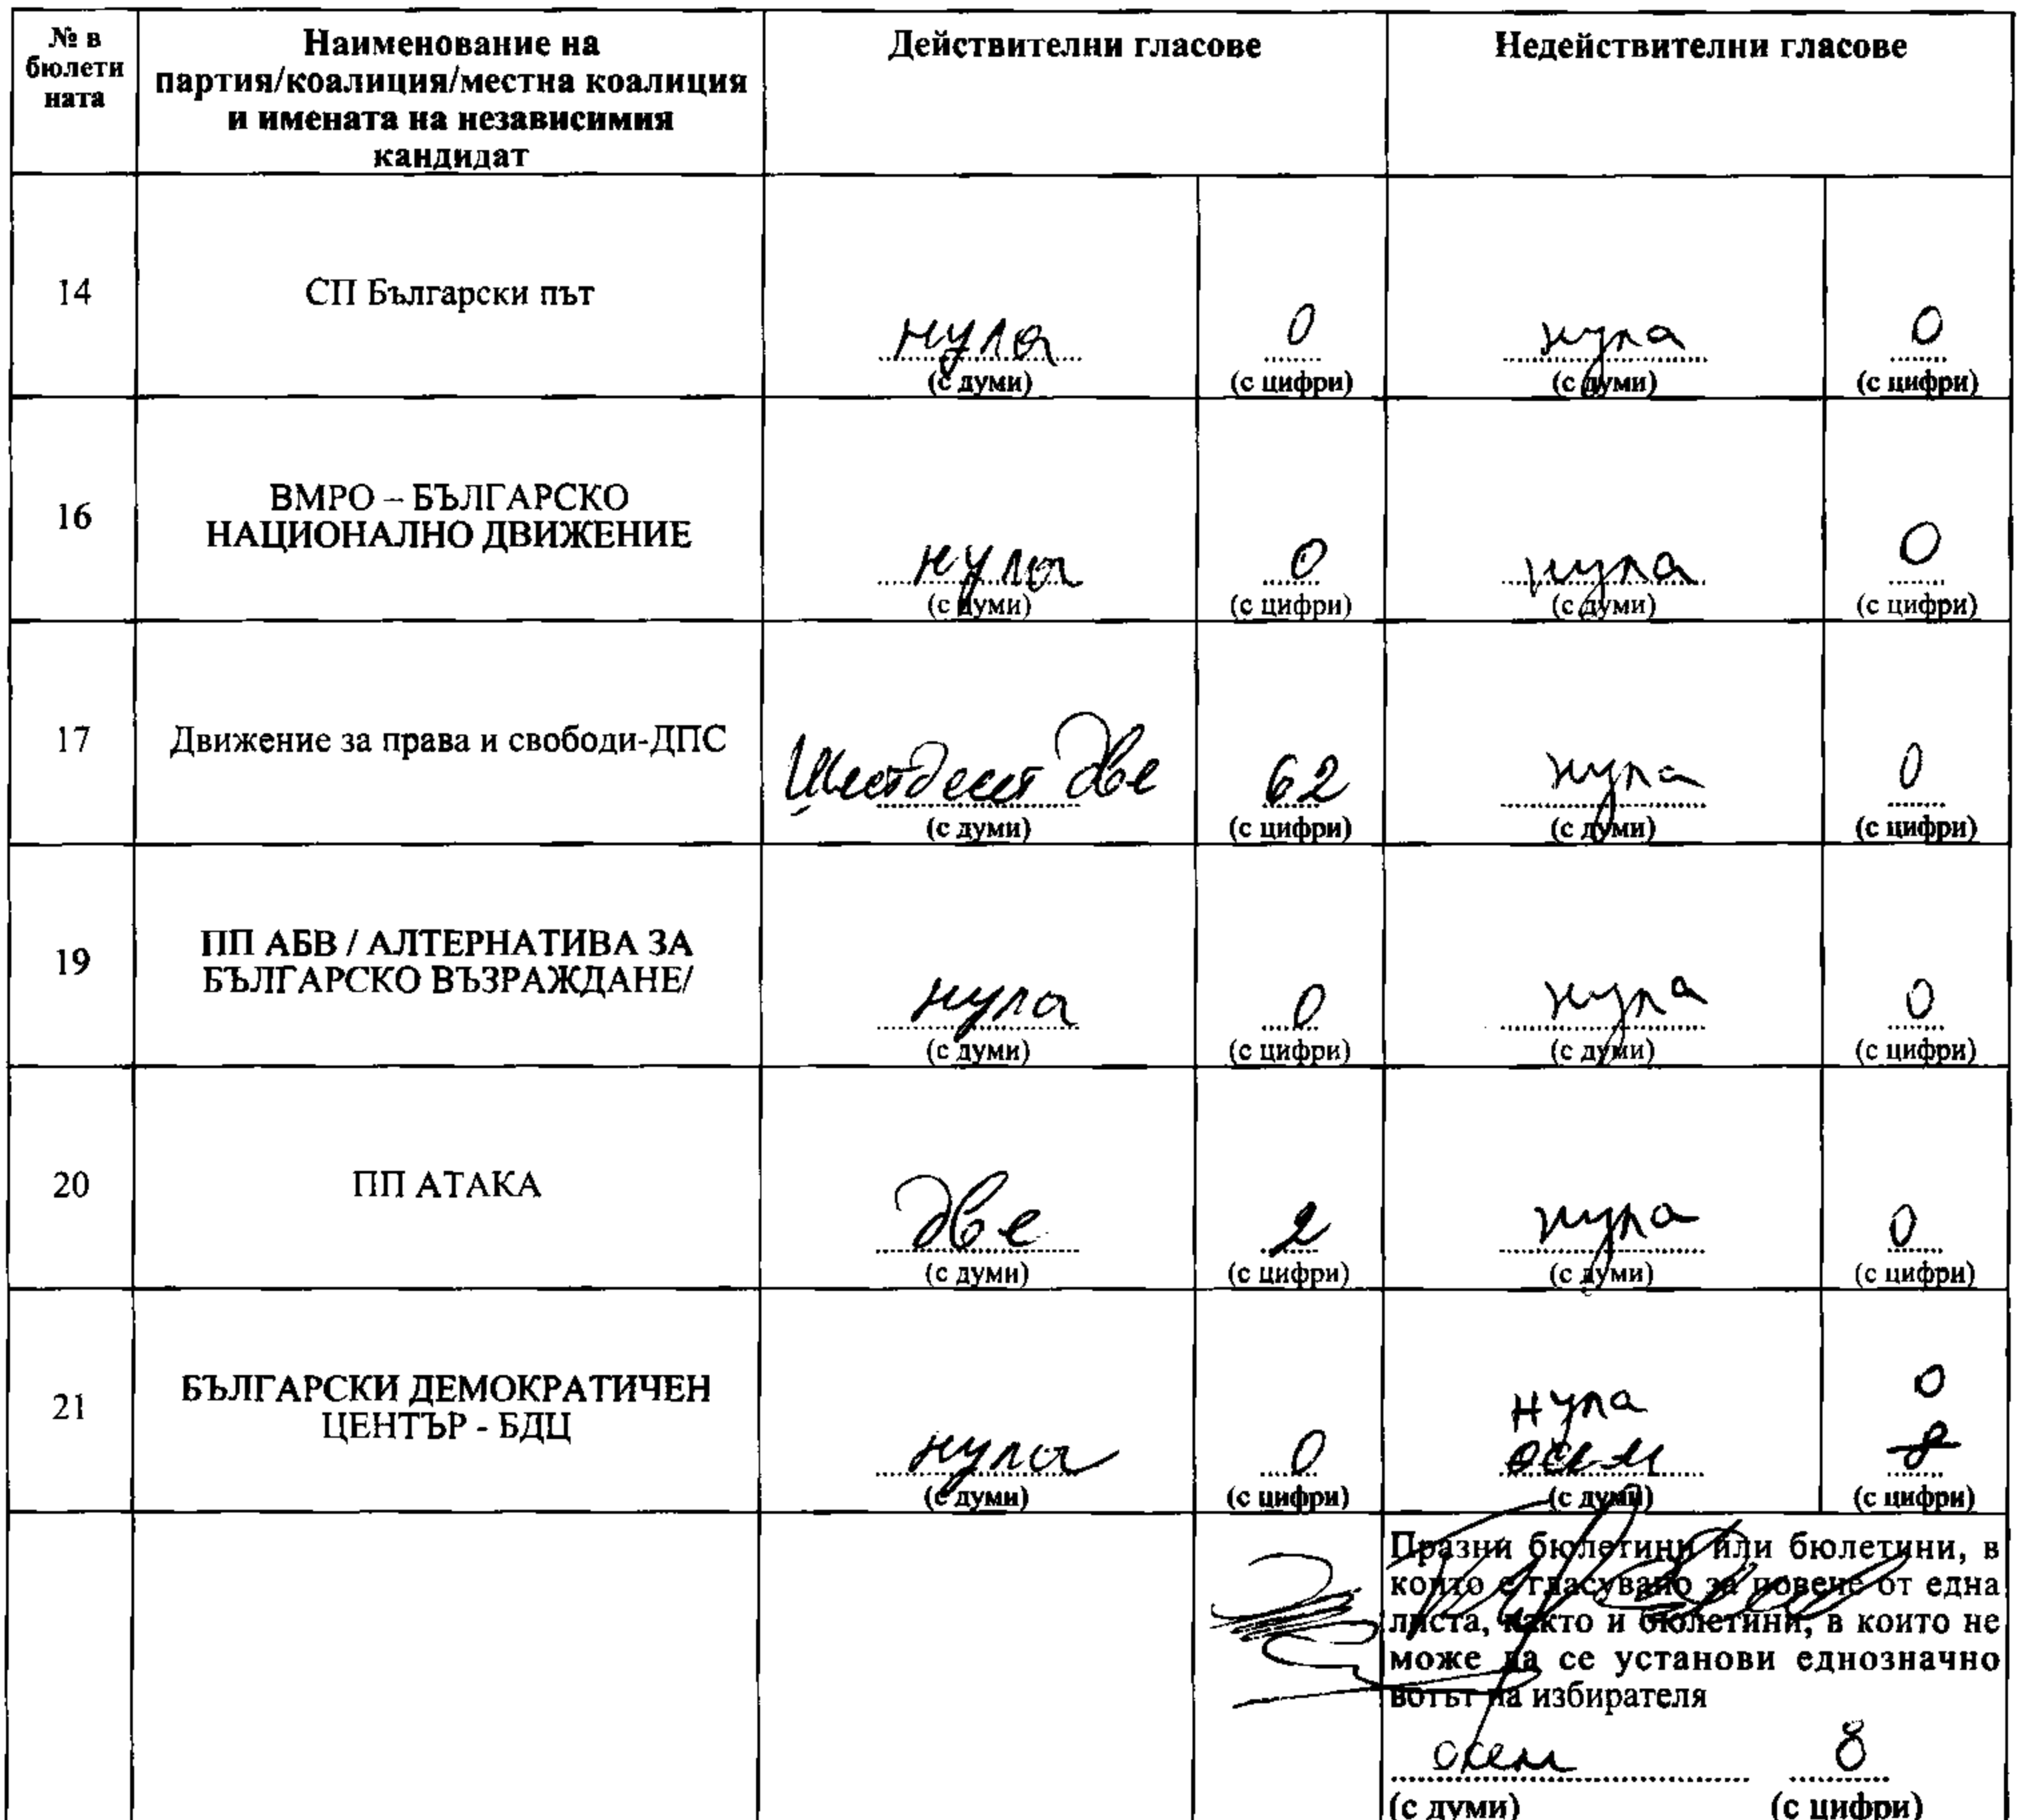 № в
бюлети
ната
Наименование на
партия/коалиция/местна коалиция
и имената на независимия
кандидат
Действителни гласове
Недействителни гласове
14
СП Български път
нула
(с думи)
0
(с цифри)
нула
(с думи)
0
(с цифри)
16
ВМРО – БЪЛГАРСКО
НАЦИОНАЛНО ДВИЖЕНИЕ
нула
(с думи)
0
(с цифри)
нула
(с думи)
0
(с цифри)
17
Движение за права и свободи-ДПС
Шестдесет две
(с думи)
62
(с цифри)
нула
(с думи)
0
(с цифри)
19
ПП АБВ / АЛТЕРНАТИВА ЗА
БЪЛГАРСКО ВЪЗРАЖДАНЕ/
нула
(с думи)
0
(с цифри)
нула
(с думи)
0
(с цифри)
20
ПП АТАКА
две
(с думи)
2
(с цифри)
нула
(с думи)
0
(с цифри)
21
БЪЛГАРСКИ ДЕМОКРАТИЧЕН
ЦЕНТЪР - БДЦ
нула
(с думи)
0
(с цифри)
нула
осем
(с думи)
0
8
(с цифри)
Празни бюлетини или бюлетини, в
които е гласувано за повече от една
листа, както и бюлетини, в които не
може да се установи еднозначно
вотът на избирателя
осем
(с думи)
8
(с цифри)